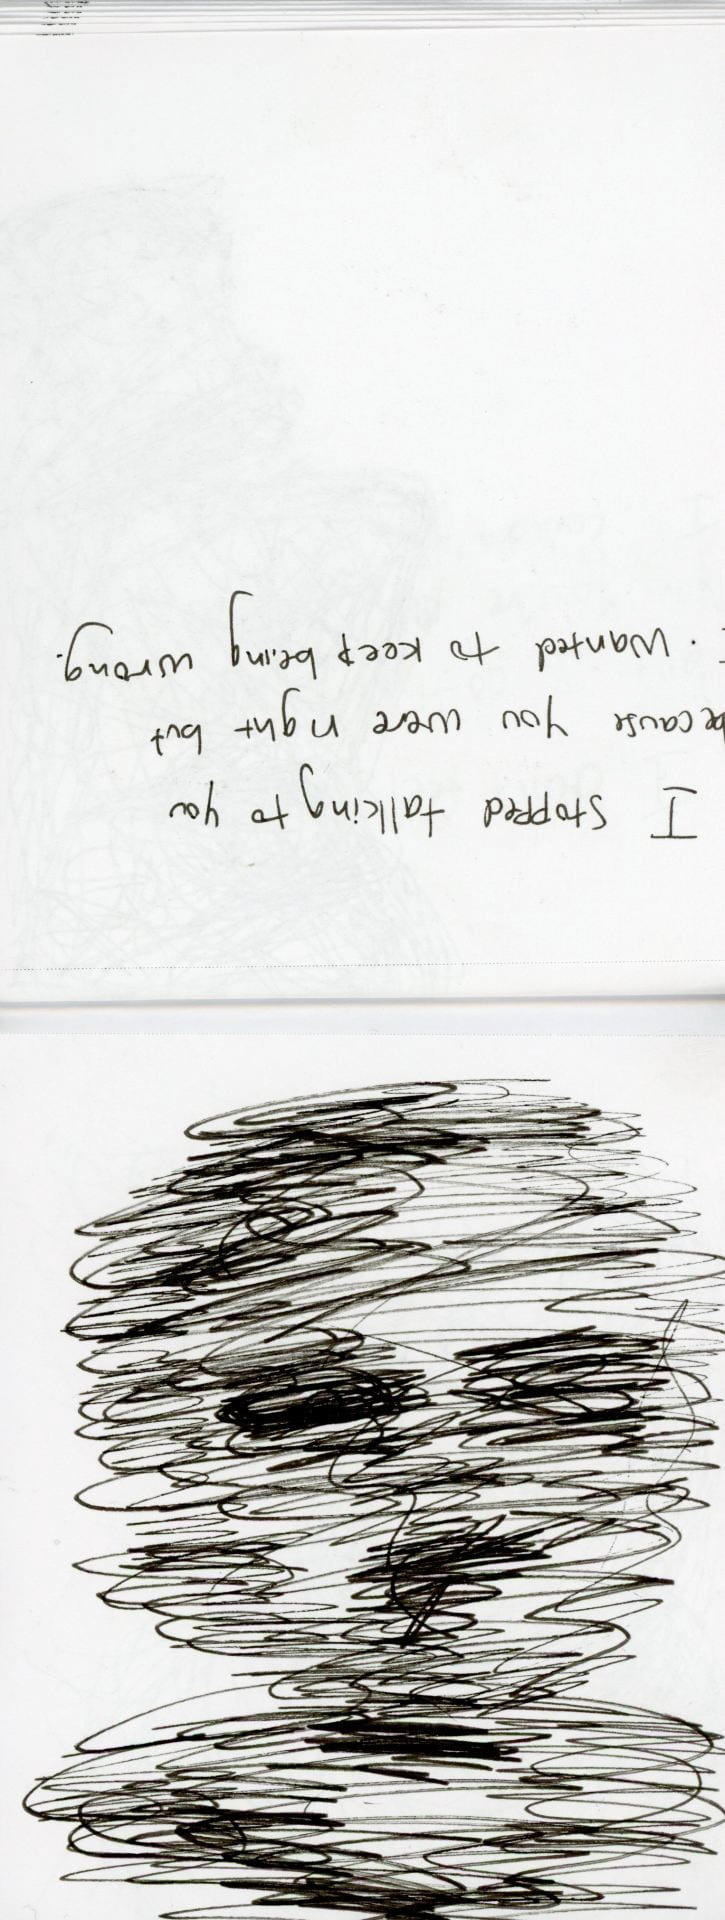 I stopped talking to you
because you were right but
I wanted to keep being wrong.